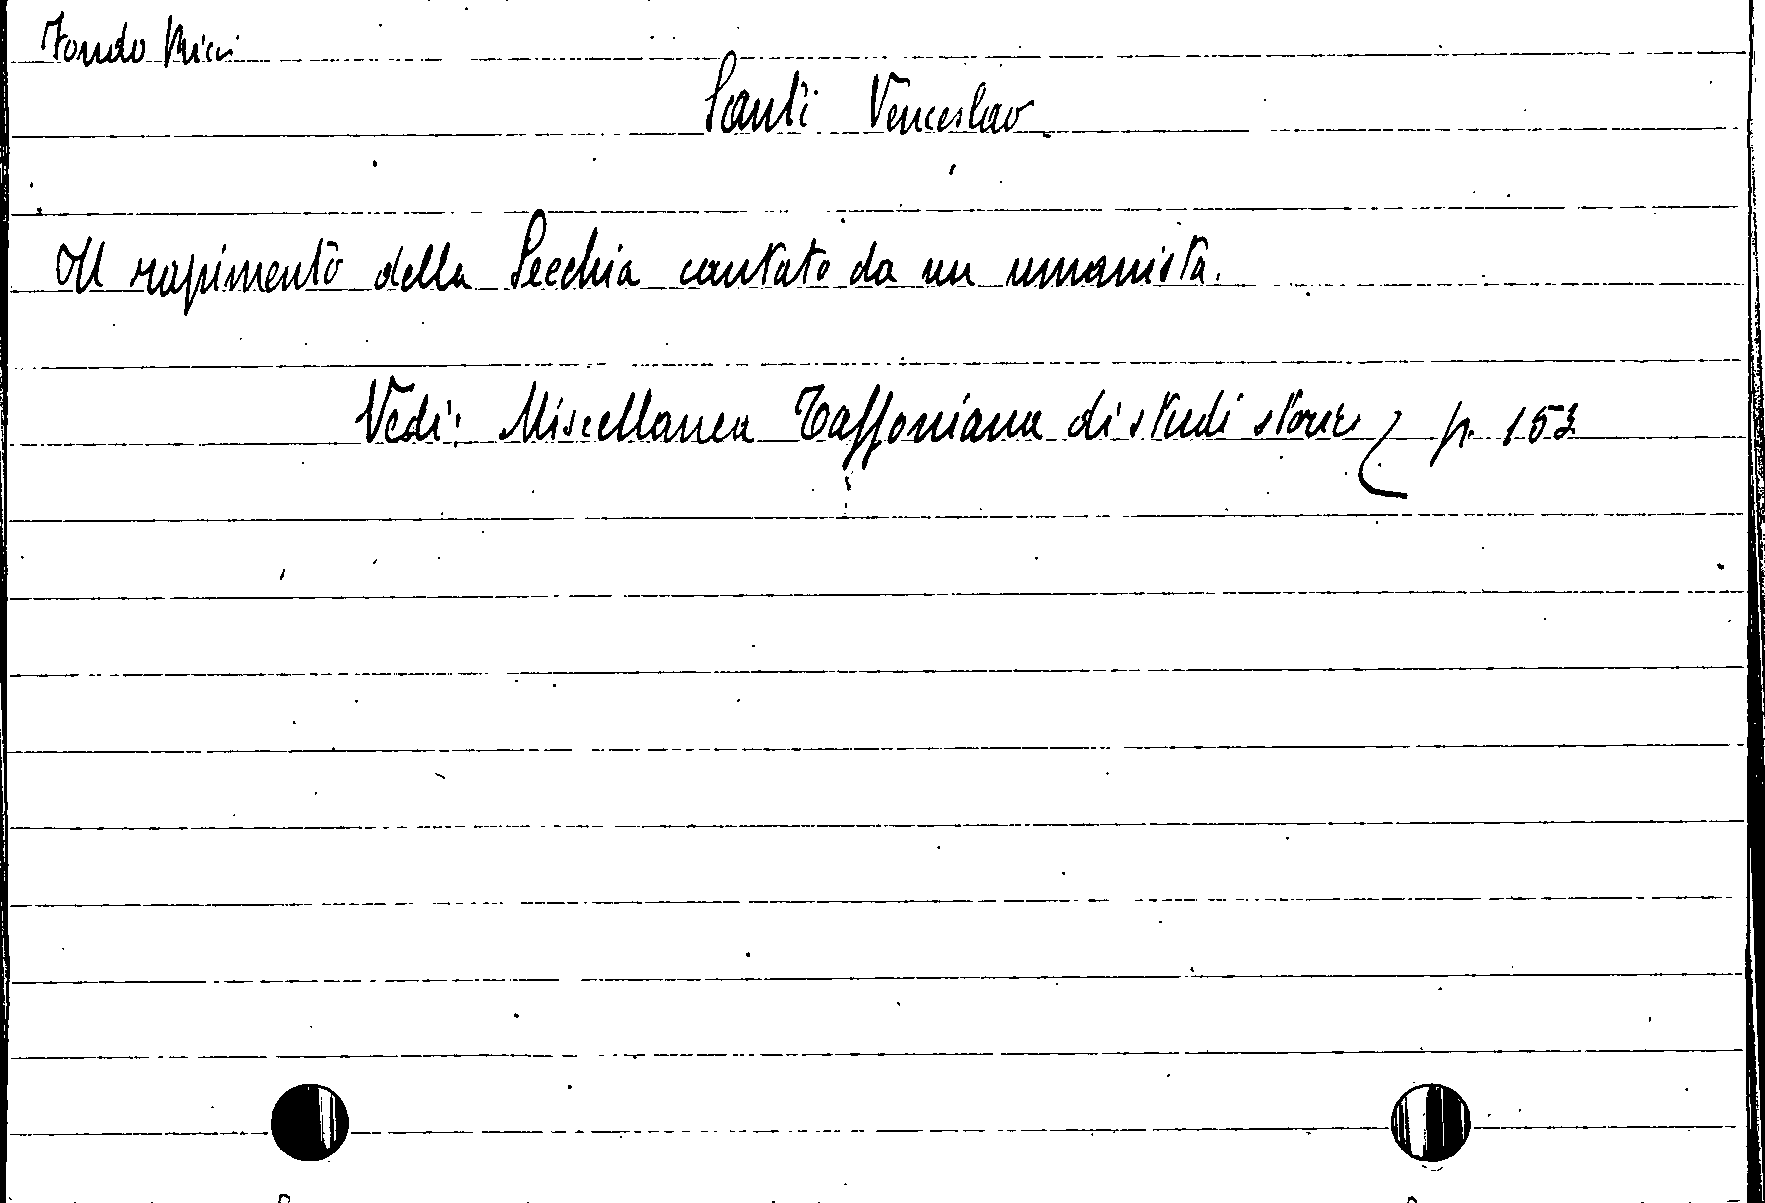 Fondo Ricci
Santi Venceslao
Il rapimento della Secchia cantato da un umanista.
Vedi: Miscellanea Tassoniana di studi storici p. 153